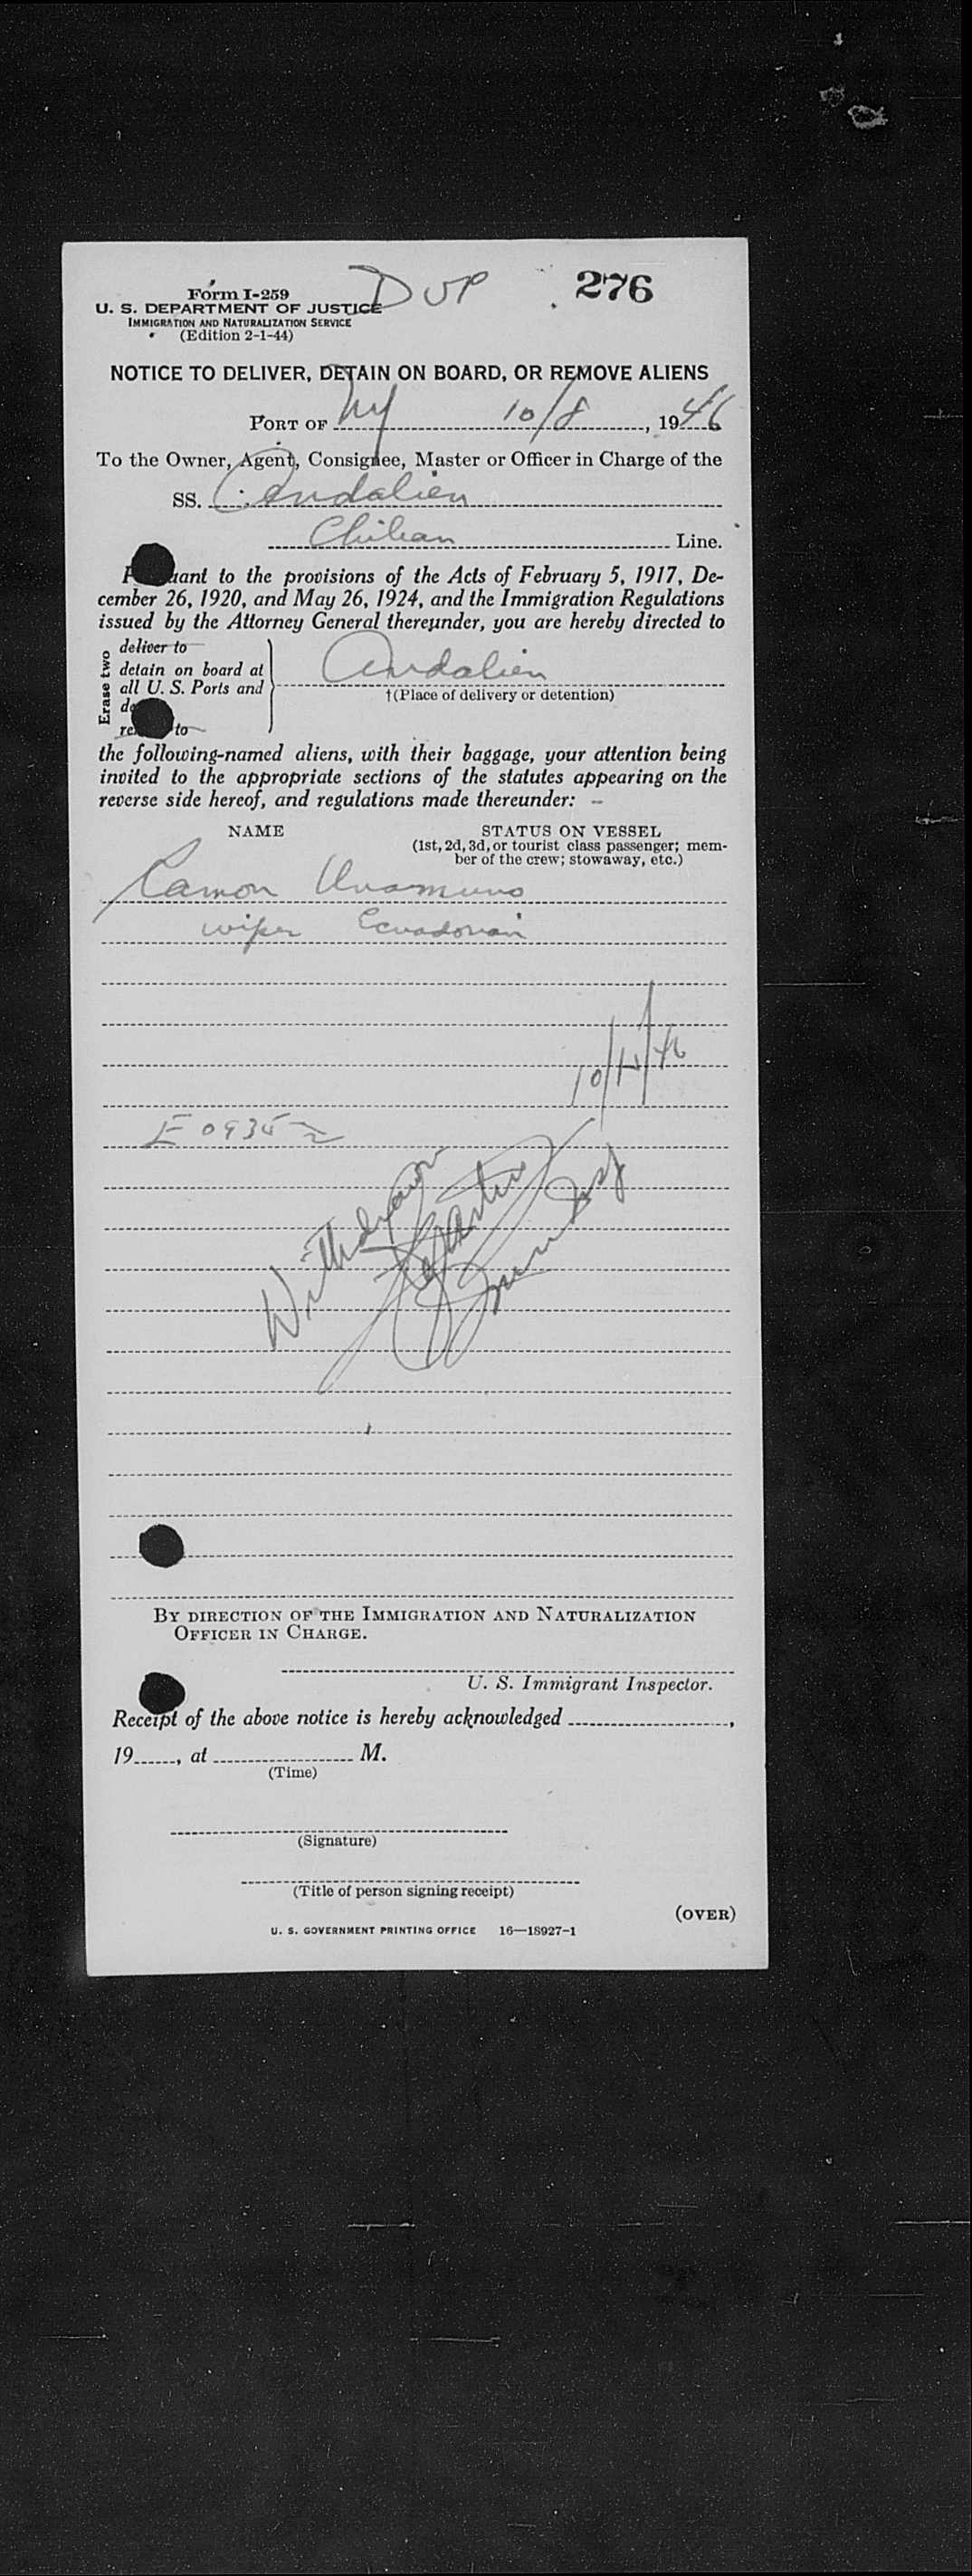 Form I-259
DUP
276
U. S. DEPARTMENT OF JUSTICE
IMMIGRATION AND NATURALIZATION SERVICE
(Edition 2-1-44)
NOTICE TO DELIVER, DETAIN ON BOARD, OR REMOVE ALIENS
PORT OF NY 10/8, 1946
To the Owner, Agent, Consignee, Master or Officer in Charge of the
SS. Andalien
Chilean Line.
to the provisions of the Acts of February 5, 1917, De-
cember 26, 1920, and May 26, 1924, and the Immigration Regulations
issued by the Attorney General thereunder, you are hereby directed to
Erase two
deliver to
detain on board at
all U. S. Ports and
to
Andalien
†(Place of delivery or detention)
the following-named aliens, with their baggage, your attention being
invited to the appropriate sections of the statutes appearing on the
reverse side hereof, and regulations made thereunder: –
NAME
STATUS ON VESSEL
(1st, 2d, 3d, or tourist class passenger; mem-
ber of the crew; stowaway, etc.)
Ramon Unamuno
wiper Ecuadorian
E 09352
Withdrawn
BY DIRECTION OF THE IMMIGRATION AND NATURALIZATION
OFFICER IN CHARGE.
U. S. Immigrant Inspector.
Receipt of the above notice is hereby acknowledged ,
19 , at M.
(Time)
(Signature)
(Title of person signing receipt)
(OVER)
U. S. GOVERNMENT PRINTING OFFICE 16—18927-1